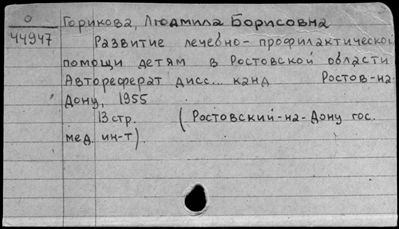 О Горикова, Людмила Борисовна
44947 Развитие лечебно-профилактической
помощи детям в Ростовской области
Автореферат дисс... канд Ростов-на-
Дону, 1955
13 стр. (Ростовский-на-Дону гос.
мед. ин-т).